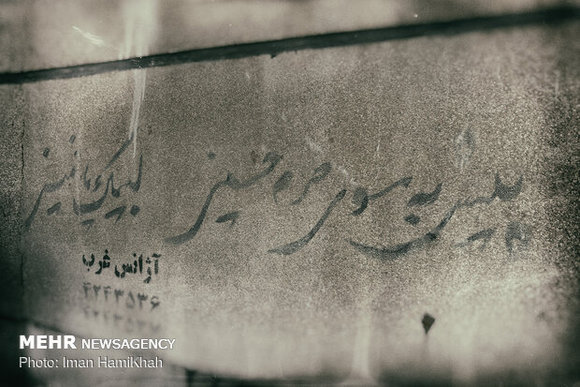 پیش به سوی حرم حسینی لبیک یا خمینی
آژانس غرب
۴۲۴۳۵۳۶
MEHR NEWSAGENCY
Photo: Iman Hamikhah